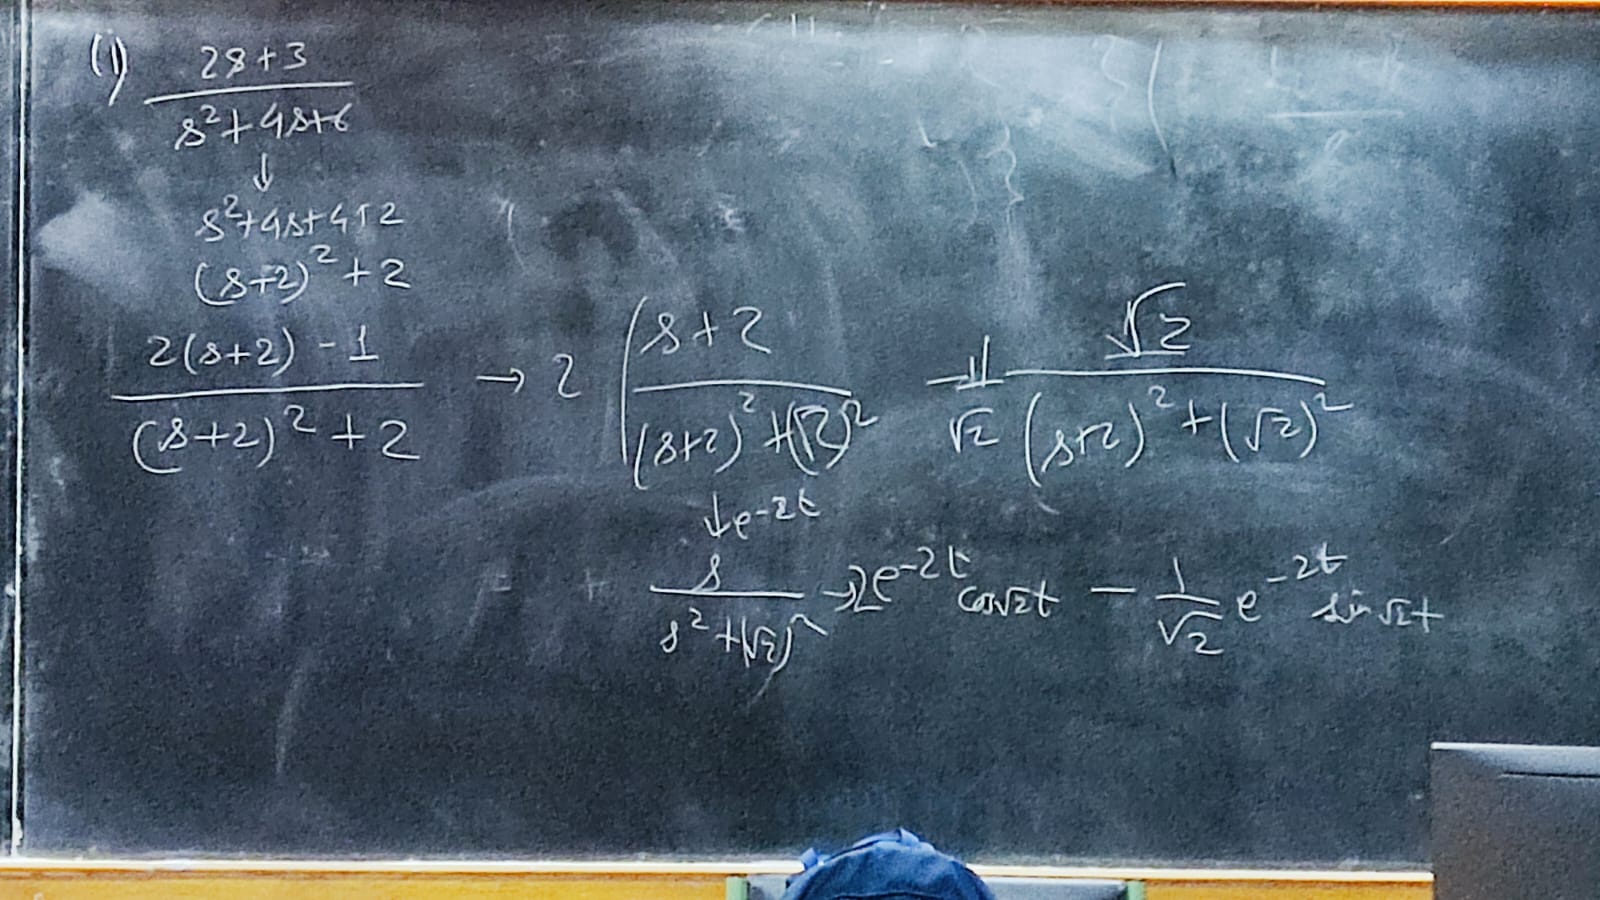 (1) 2s+3
s²+4s+6
↓
s²+4s+4+2
(s+2)²+2
2(s+2) - 1 / (s+2)²+2 → 2 (s+2 / (s+2)²+(√2)² - 1/√2 √2 / (s+2)²+(√2)²
↓ e^-2t
s / s²+(√2)² → 2e^-2t cos√2t - 1/√2 e^-2t sin √2t